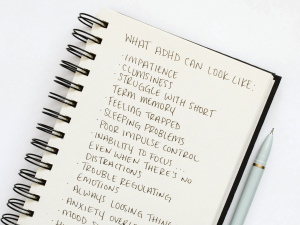 WHAT ADHD CAN LOOK LIKE:
· IMPATIENCE
· CLUMSINESS
· STRUGGLE WITH SHORT
TERM MEMORY
· FEELING TRAPPED
· SLEEPING PROBLEMS
· POOR IMPULSE CONTROL
· INABILITY TO FOCUS
EVEN WHEN THERE'S NO
DISTRACTIONS
· TROUBLE REGULATING
EMOTIONS
· ALWAYS LOOSING THING
· ANXIETY OVER
· MOOD